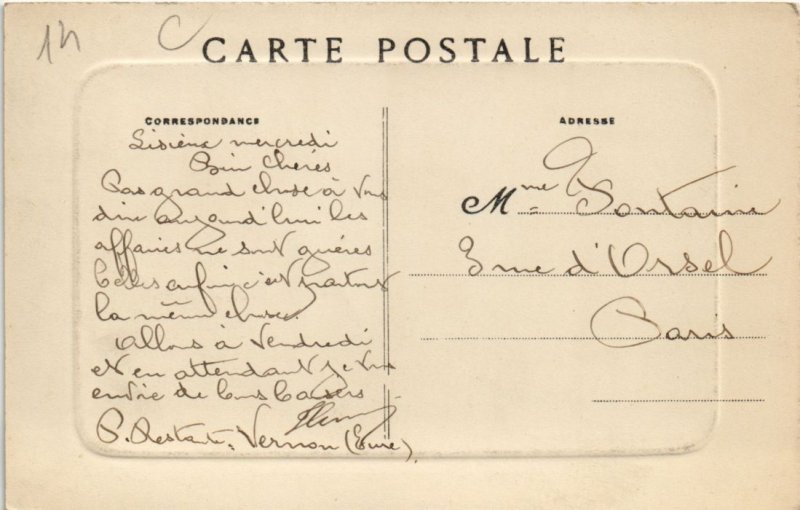 14 C
CARTE POSTALE
CORRESPONDANCE
Lisieux mercredi
Bien Chères
Pas grand chose à vous
dire aujourd'hui les
affaires ne sont guères
belles enfin c'est partout
la même chose.
Allons à Vendredi
et en attendant je vous
envoie de bons baisers
P. Restante, Vernon (Eure).
ADRESSE
Mme Fontaine
3 rue d'Orsel
Paris